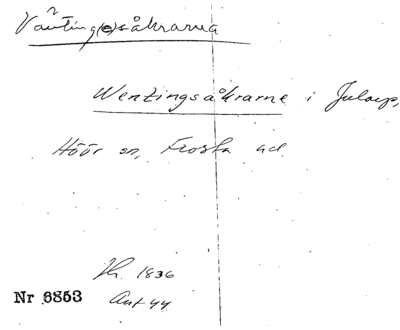 Vänting(e)såkrarna
Wentingsåkrarne i Jularp,
Höör sn, Frosta hd
1836
Nr 6853 Ant 44